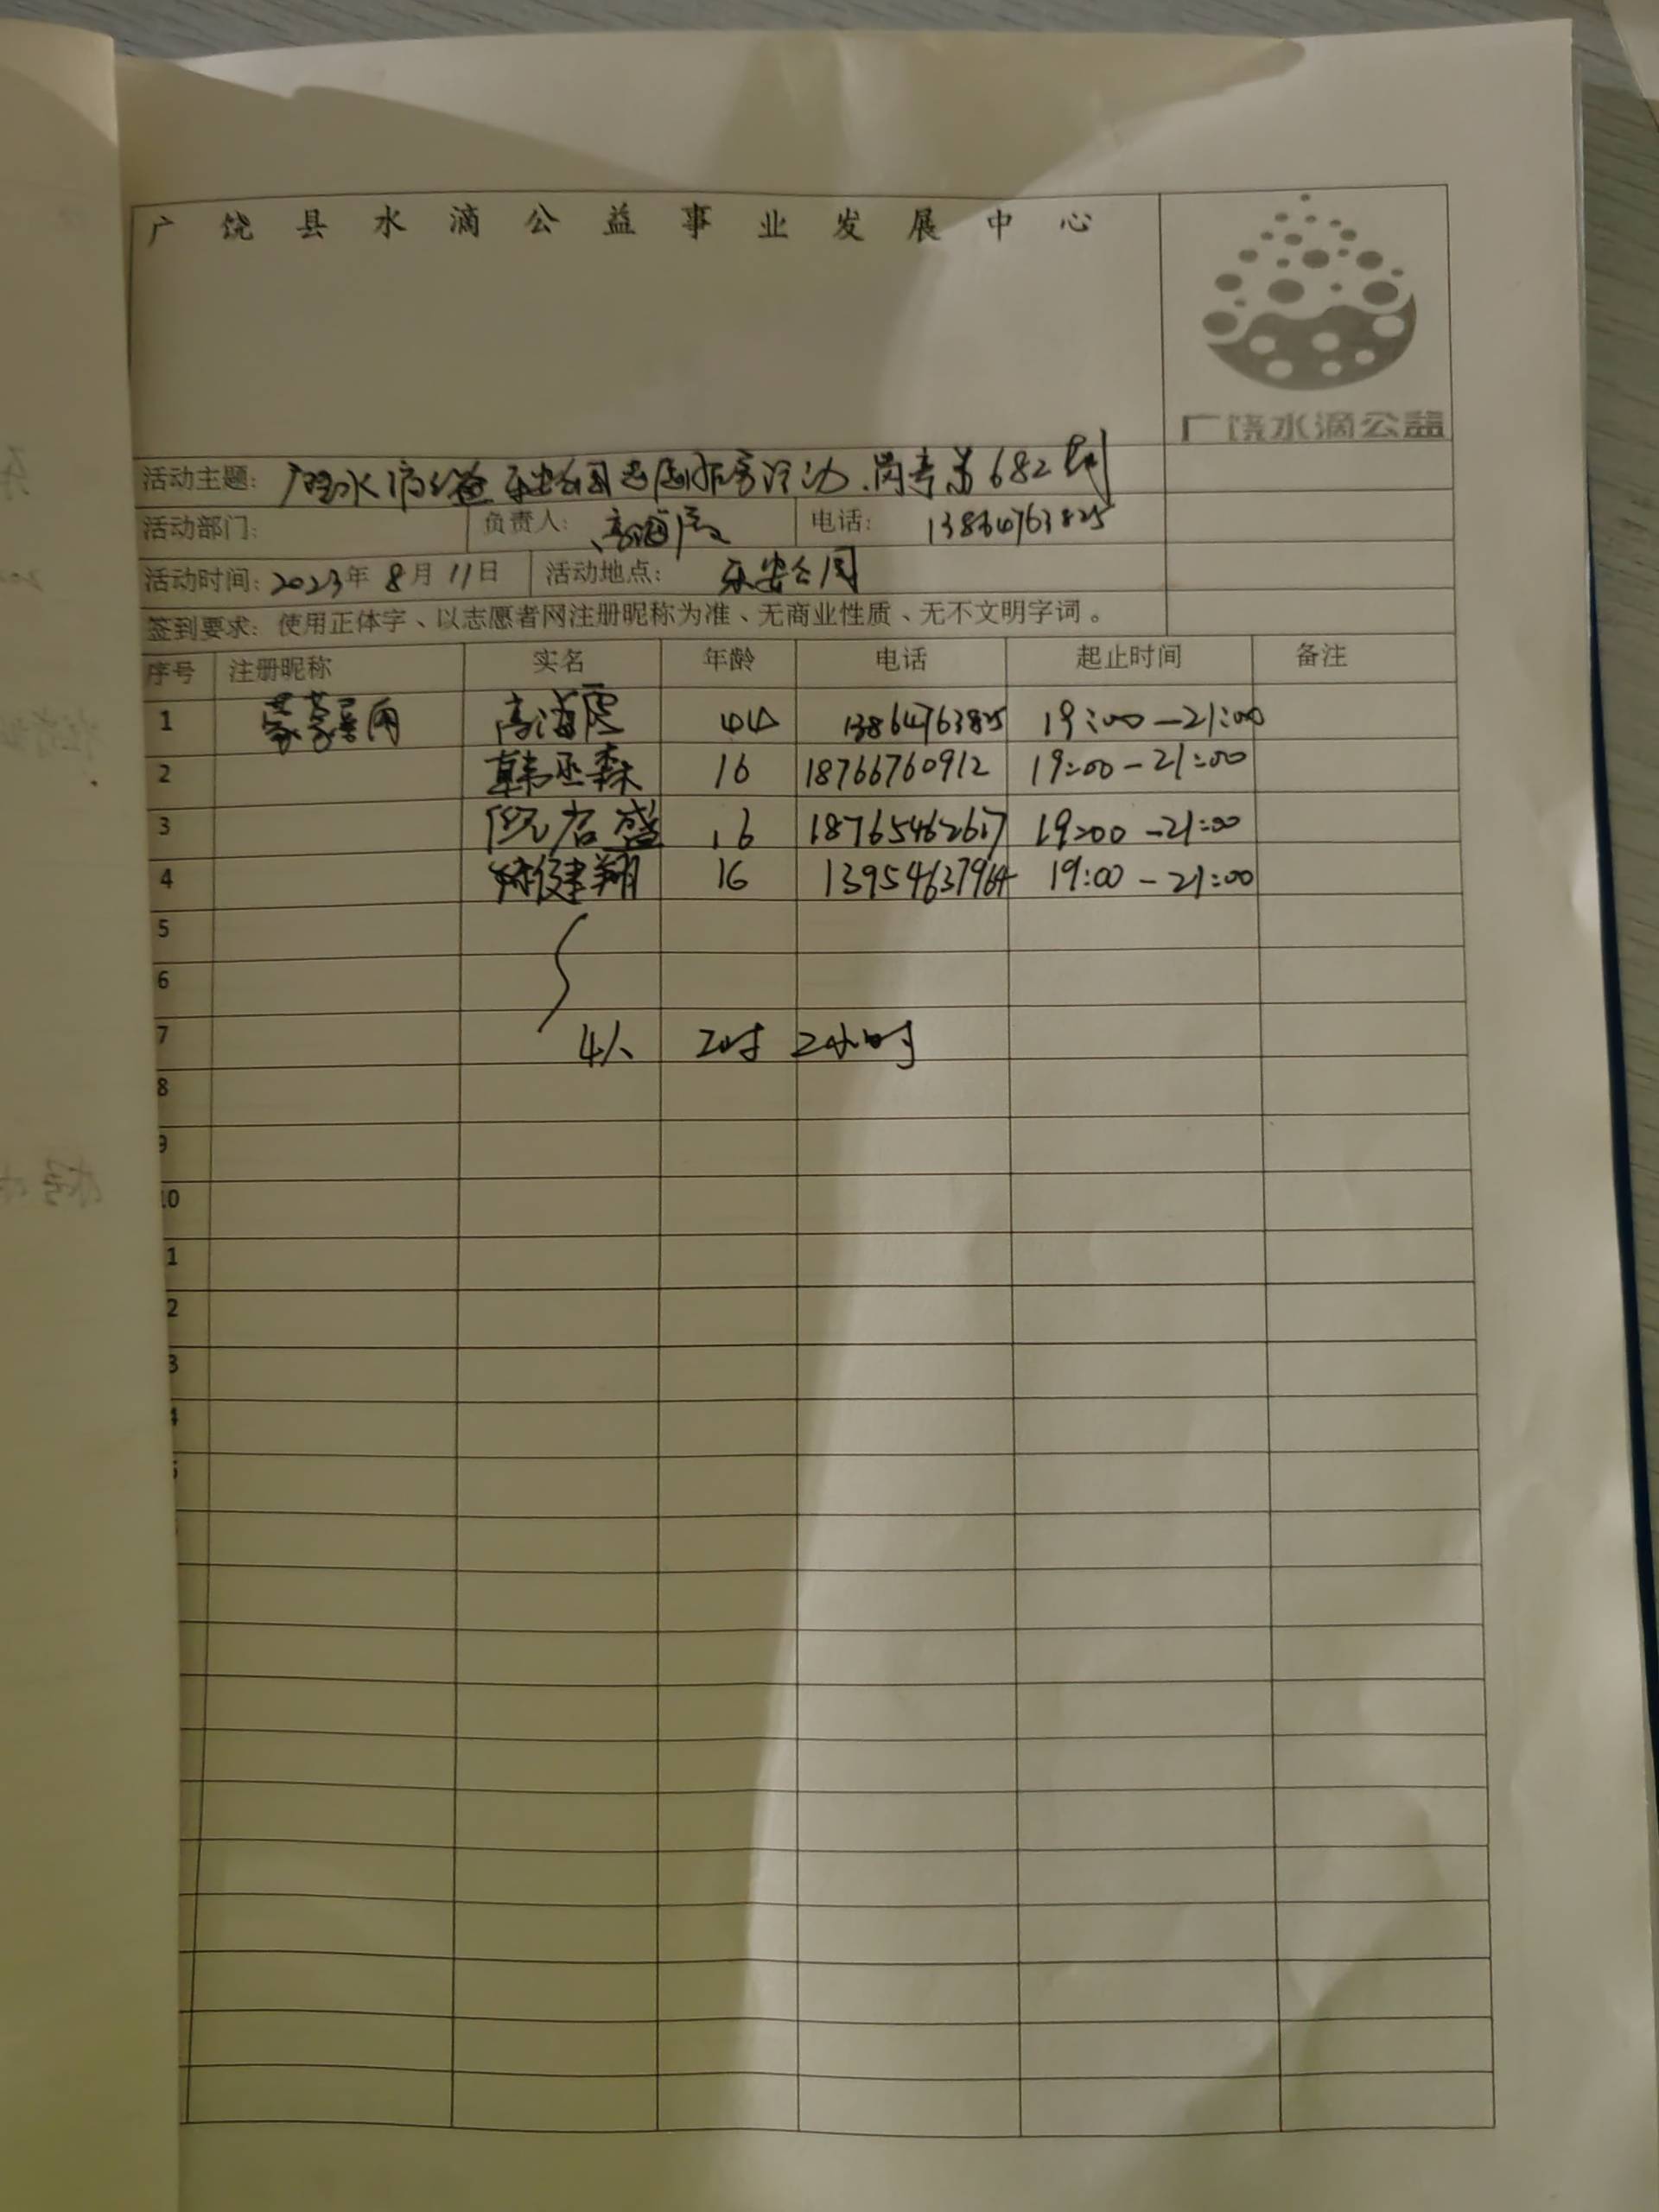 广饶县水滴公益事业发展中心
广饶水滴公益
活动主题: 广饶水滴公益乐安公园志愿 活动.岗亭第682
活动部门: 负责人: 高海霞 电话: 13864763825
活动时间: 2023年8月11日 活动地点: 乐安公园
签到要求: 使用正体字、以志愿者网注册昵称为准、无商业性质、无不文明字词。
序号 注册昵称 实名 年龄 电话 起止时间 备注
1 蒙蒙细雨 高海霞 44 13864763825 19:00-21:00
2 韩丞森 16 18766760912 19:00-21:00
3 倪启盛 16 18765462617 19:00-21:00
4 健翔 16 13954637964 19:00-21:00
5
6
7 4人 2时 2小时
8
9
10
1
2
3
4
5